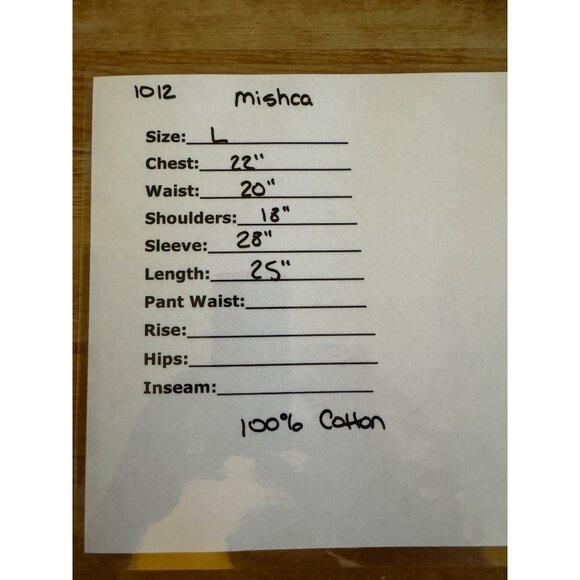 1012 mishca
Size: L
Chest: 22"
Waist: 20"
Shoulders: 18"
Sleeve: 28"
Length: 25"
Pant Waist:
Rise:
Hips:
Inseam:
100% Cotton